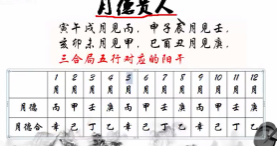 月德贵人
寅午戌月见丙，申子辰月见壬，
亥卯未月见甲，巳酉丑月见庚。
三合局五行对应的阳干
1月 2月 3月 4月 5月 6月 7月 8月 9月 10月 11月 12月
月德 丙 甲 壬 庚 丙 甲 壬 庚 丙 甲 壬 庚
月德合 辛 己 丁 乙 辛 己 丁 乙 辛 己 丁 乙